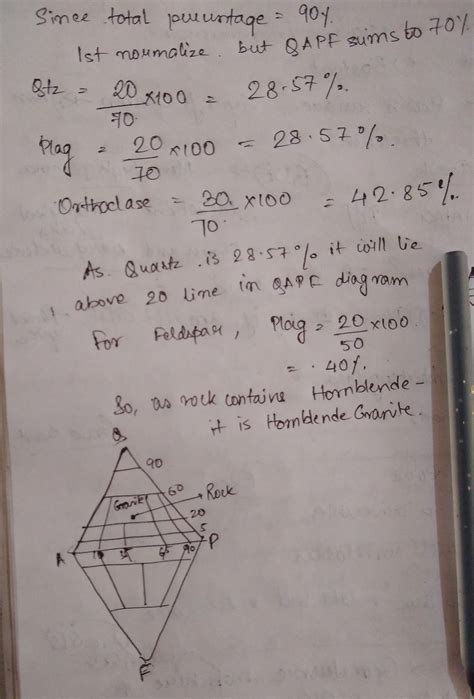 Since total percentage = 90%.
1st normalize. but QAPF sums to 70%
Qtz = 20/70 × 100 = 28.57%.
Plag = 20/70 × 100 = 28.57%.
Orthoclase = 30/70 × 100 = 42.85%.
As Quartz is 28.57% it will lie
above 20 line in QAPF diagram
For Feldspar, Plag = 20/50 × 100
= 40%.
So, as rock contains Hornblende -
it is Hornblende Granite.
Q
90
60
Granite
Rock
20
5
A
10
35
65
90
P
F